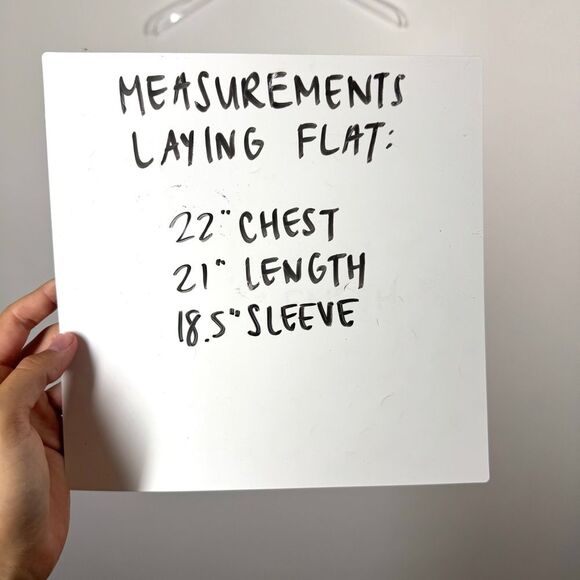 MEASUREMENTS
LAYING FLAT:
22" CHEST
21" LENGTH
18.5" SLEEVE